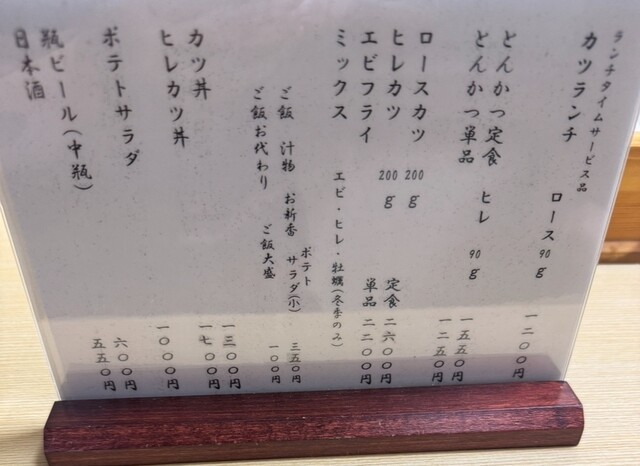 ランチタイムサービス品
カツランチ ロース 90g 一二〇〇円
とんかつ定食 ヒレ 90g 一五五〇円
とんかつ単品 一二五〇円
ロースカツ 200g
ヒレカツ 200g 定食 二六〇〇円
エビフライ 単品 二二〇〇円
ミックス エビ・ヒレ・牡蠣(冬季のみ)
ご飯 汁物 お新香 ポテトサラダ(小) 三五〇円
ご飯お代わり ご飯大盛 一〇〇円
カツ丼 一三〇〇円
ヒレカツ丼 一七〇〇円
ポテトサラダ 一〇〇〇円
瓶ビール(中瓶) 六〇〇円
日本酒 五五〇円